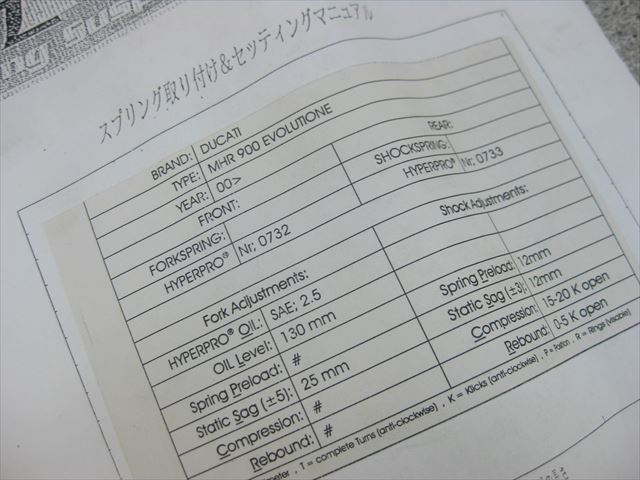 スプリング取り付け&セッティングマニュアル
BRAND: DUCATI
TYPE: MHR 900 EVOLUTIONE
YEAR: 00>
FRONT: REAR:
FORKSPRING: SHOCKSPRING:
HYPERPRO® Nr: 0732 HYPERPRO® Nr: 0733
Fork Adjustments: Shock Adjustments:
HYPERPRO® OIL: SAE: 2.5
OIL Level: 130 mm
Spring Preload: # Spring Preload: 12mm
Static Sag (±5): 25 mm Static Sag (±3): 12mm
Compression: # Compression: 15-20 K open
Rebound: # Rebound: 0-5 K open
T = complete Turns (anti-clockwise) , K = Klicks (anti-clockwise) , P = Position , R = Rings (visible)